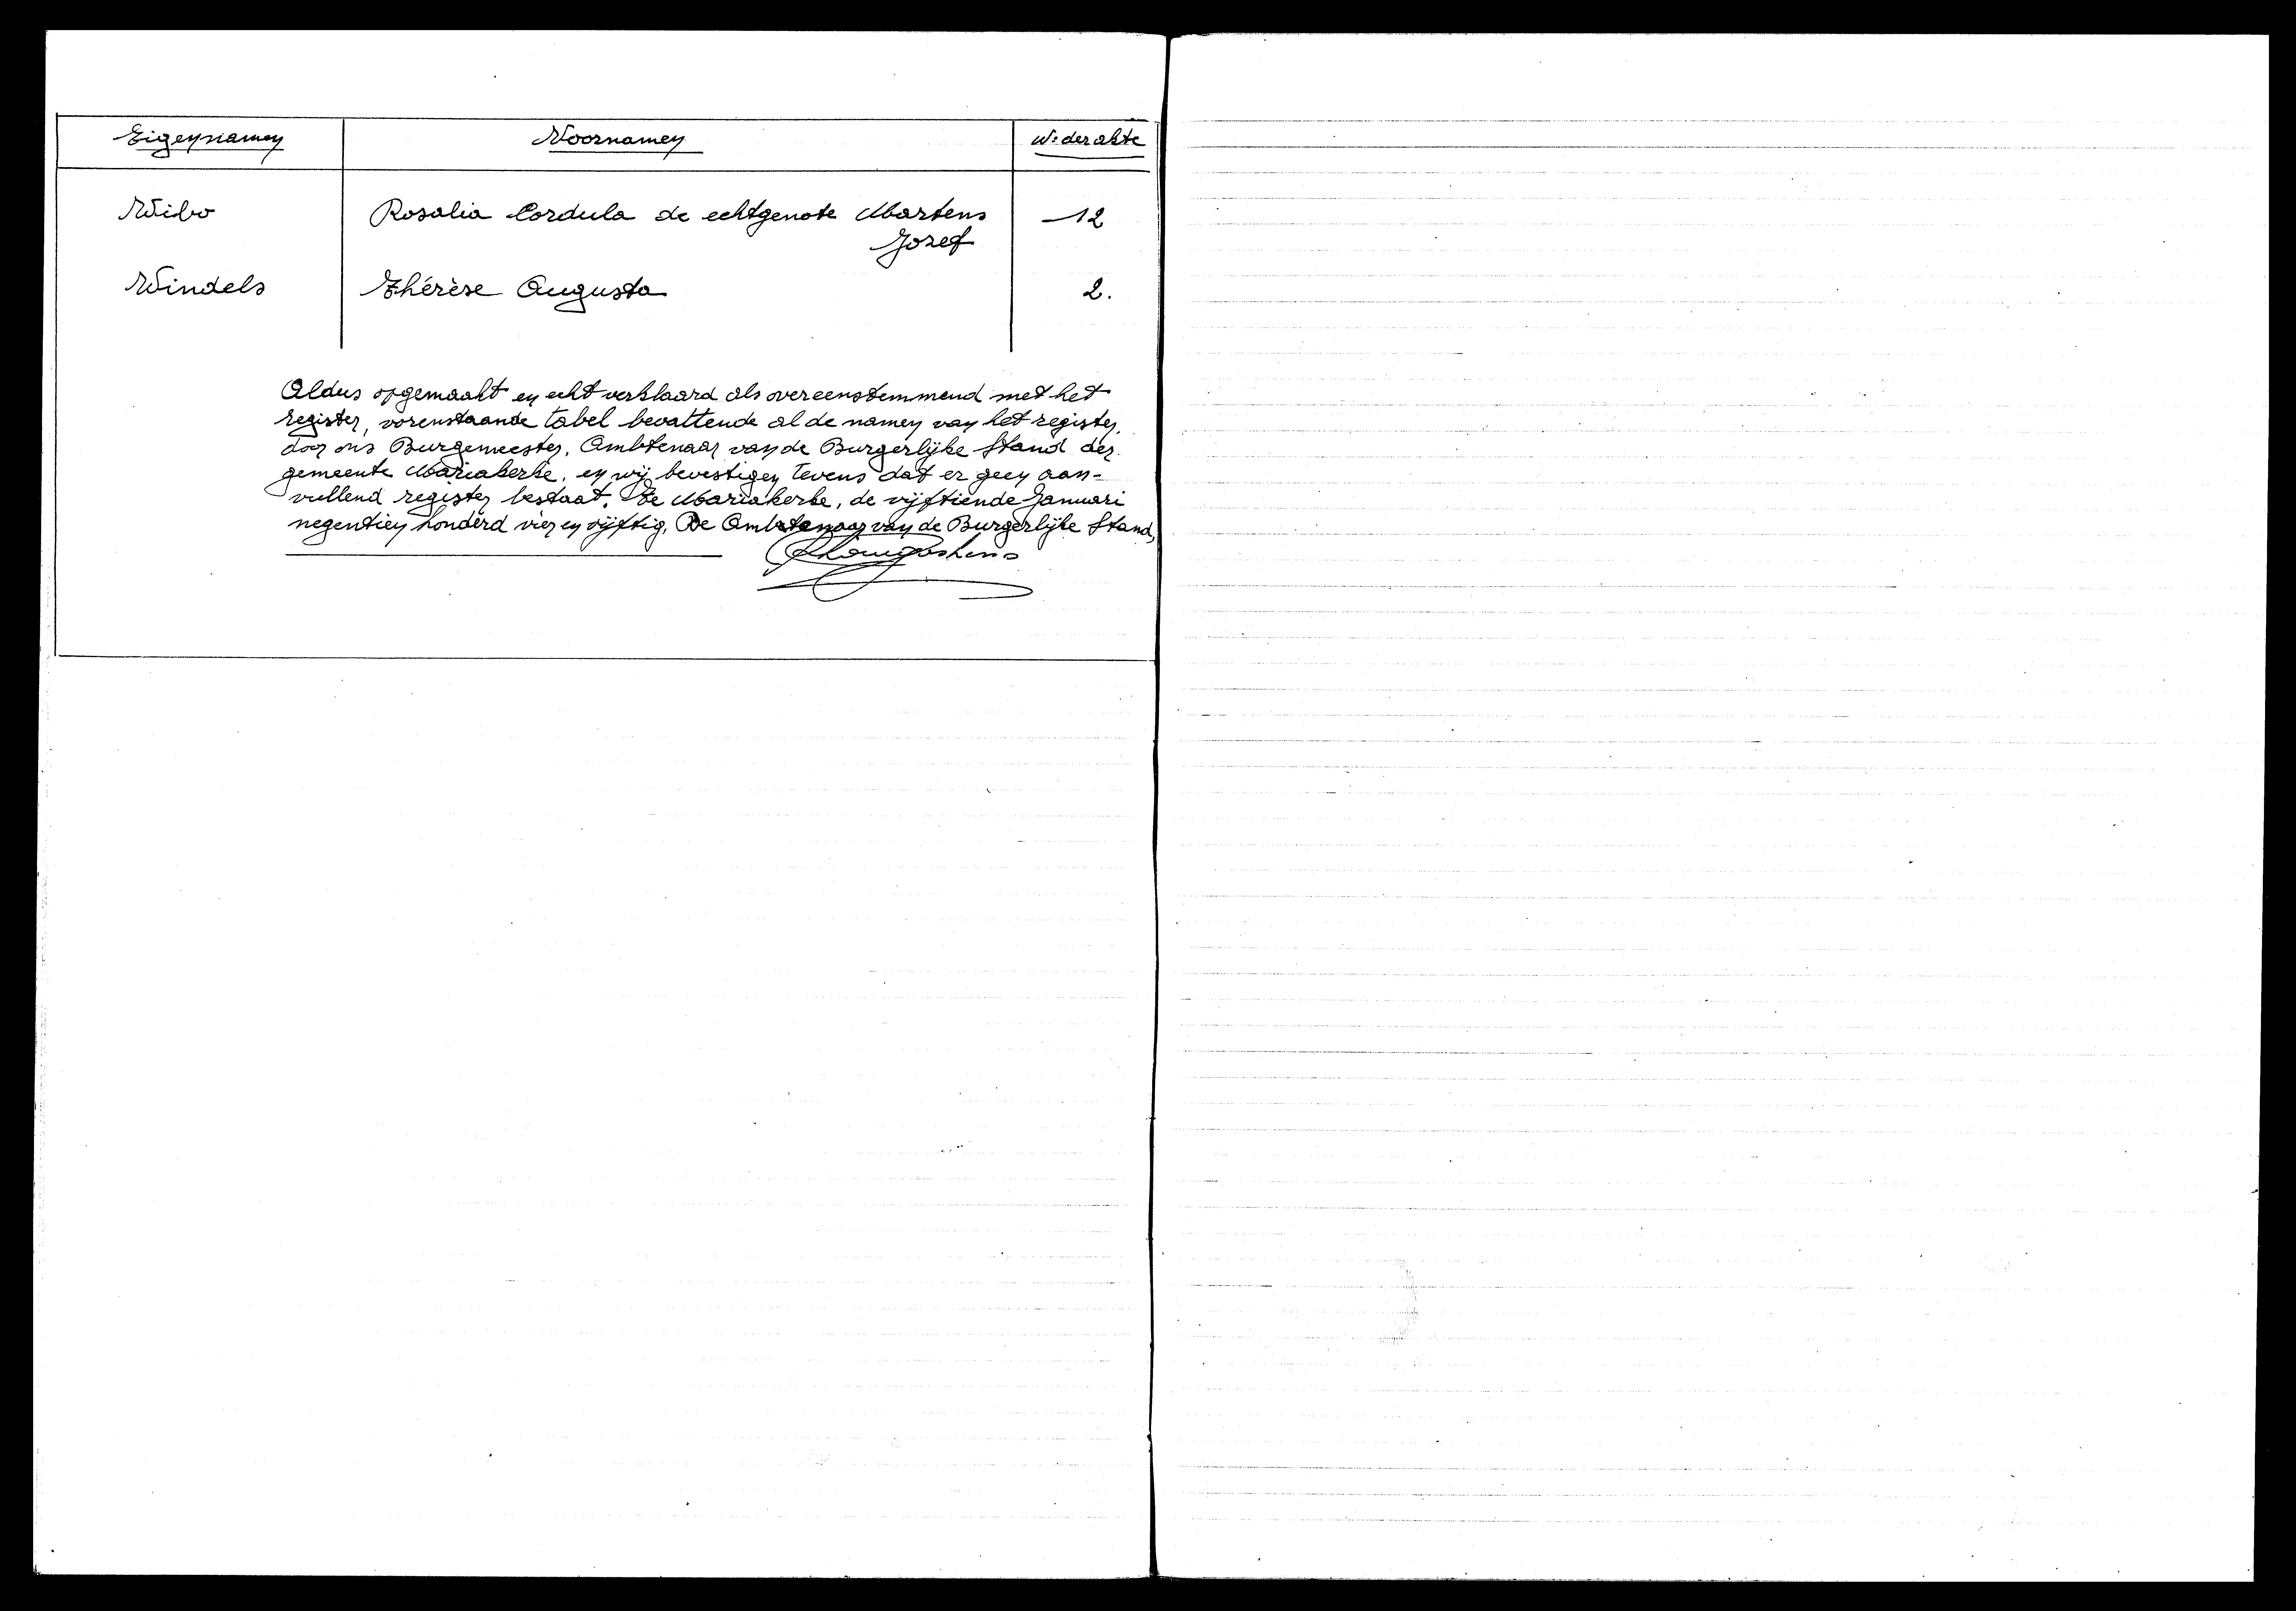 Eigennamen Voornamen Nr der akte
Wibo Rosalia Cordula de echtgenote Martens 12
Jozef
Windels Thérèse Augusta 2.
Aldus opgemaakt en echt verklaard als overeenstemmend met het
register, vorenstaande tabel bevattende al de namen van het register,
door ons Burgemeester, Ambtenaar van de Burgerlijke Stand der
gemeente Mariakerke, en wij bevestigen tevens dat er geen aan-
vullend register bestaat. Te Mariakerke, de vijftiende Januari
negentien honderd vier en vijftig. De Ambtenaar van de Burgerlijke Stand,